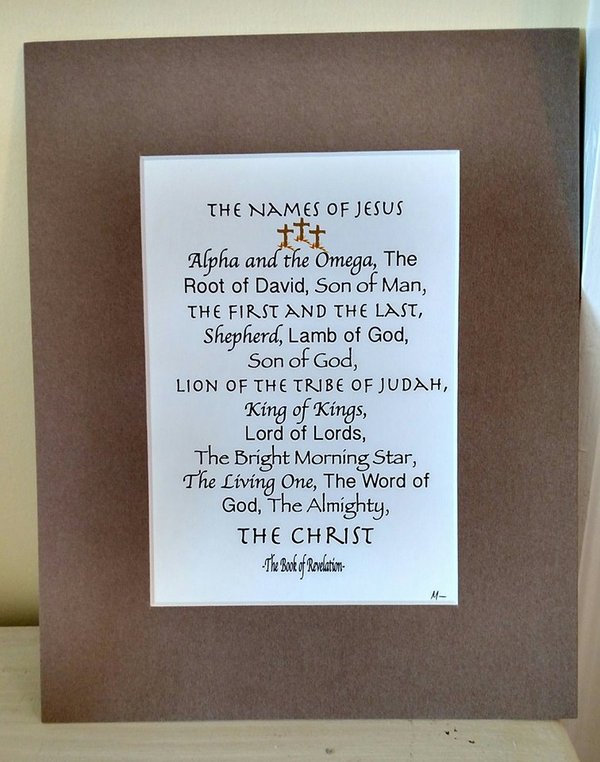 THE NAMES OF JESUS
Alpha and the Omega, The
Root of David, Son of Man,
THE FIRST AND THE LAST,
Shepherd, Lamb of God,
Son of God,
LION OF THE TRIBE OF JUDAH,
King of Kings,
Lord of Lords,
The Bright Morning Star,
The Living One, The Word of
God, The Almighty,
THE CHRIST
-The Book of Revelation-
M—